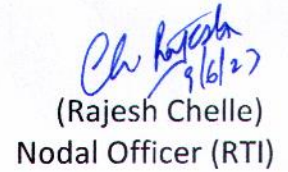 Ch Rajesh
9/6/23
(Rajesh Chelle)
Nodal Officer (RTI)